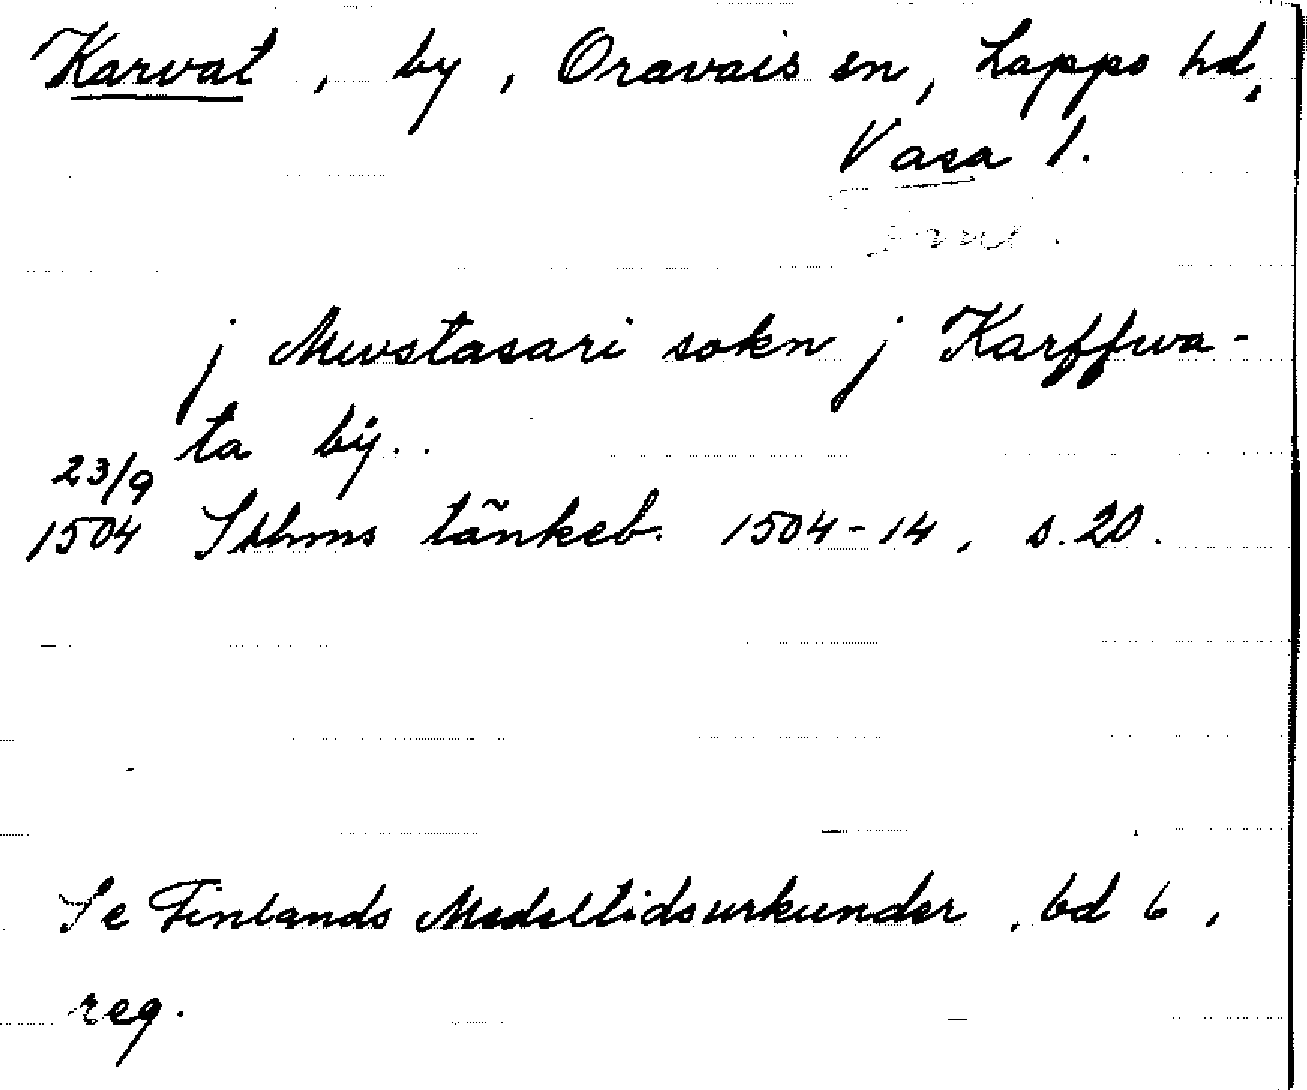 Karvat, by, Oravais sn, Lappo hd,
Vasa l.
j Mwstasari sokn j Karffwa-
ta bÿ..
23/9
1504 Sthms tänkeb. 1504-14, s. 20.
Se Finlands Medeltidsurkunder, bd 6,
reg.